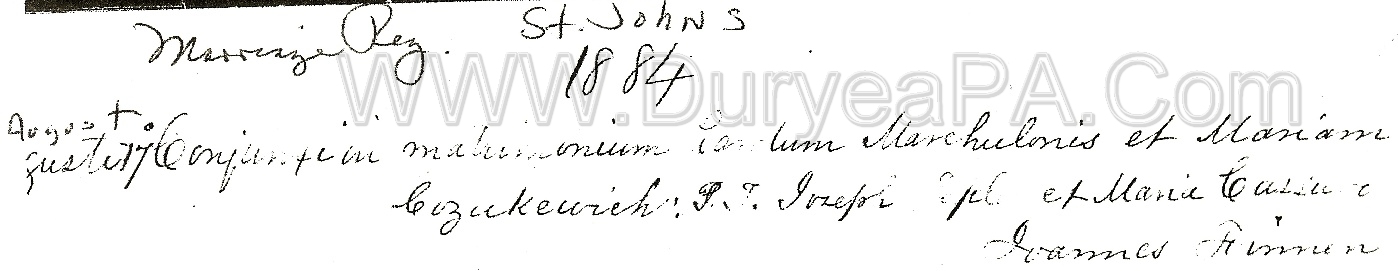 Marriage Reg. St. Johns
1884
WWW.DuryeaPA.Com
August
gusti 17° Conjunxi in matrimonium Carolum Marchulonis et Mariam
Cozukewich: P.T. Joseph et Maria
Joannes Finnen